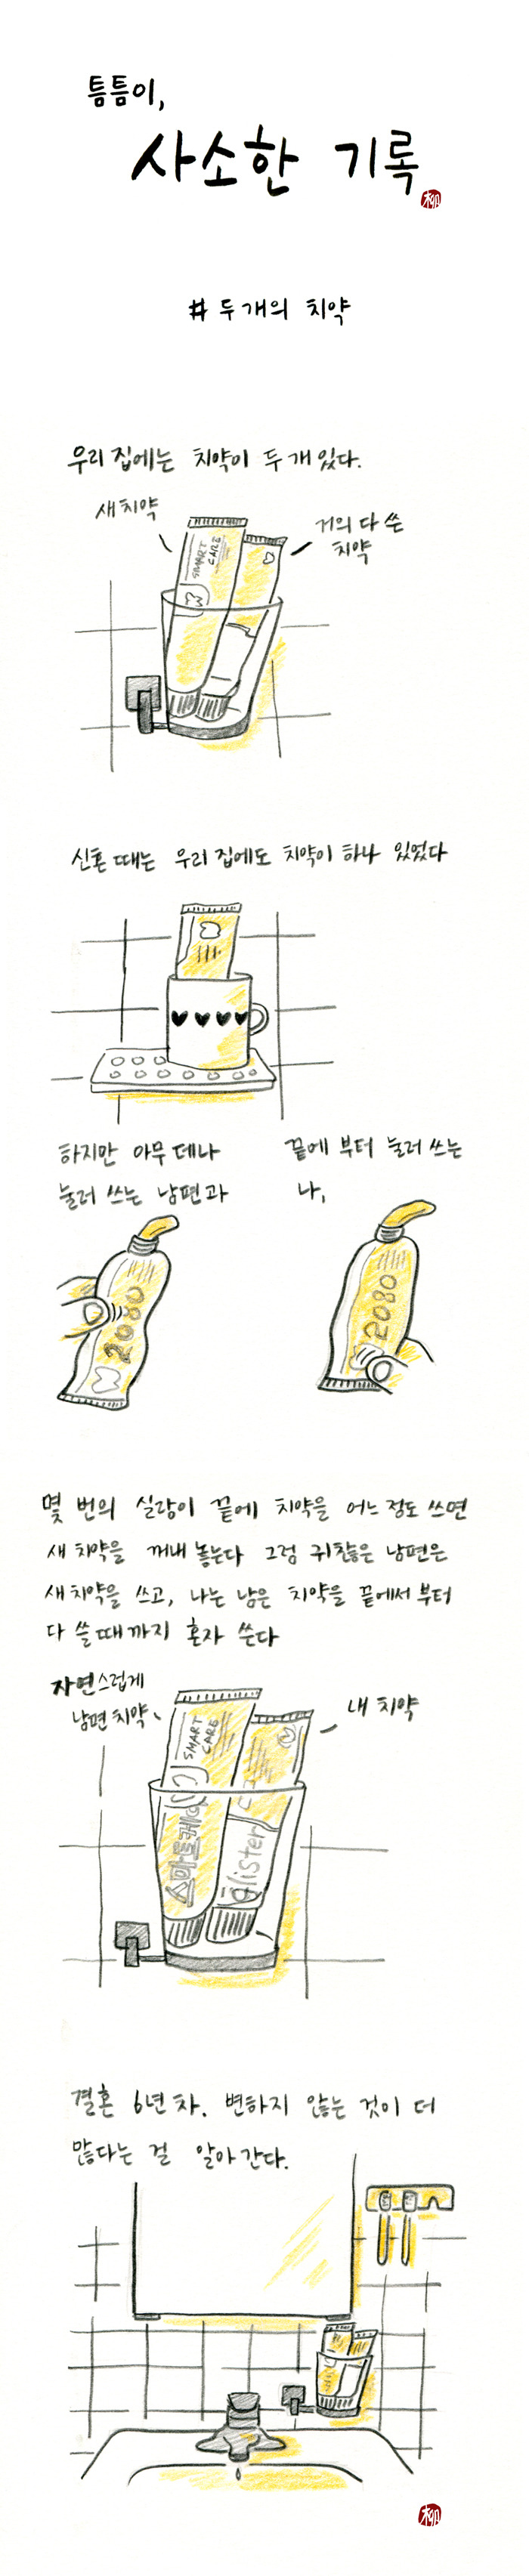 틈틈이,
사소한 기록
柳
# 두 개의 치약
우리 집에는 치약이 두 개 있다.
새 치약
거의 다 쓴
치약
SMART
CARE
신혼 때는 우리 집에도 치약이 하나 있었다
하지만 아무 데나
눌러 쓰는 남편과
끝에 부터 눌러 쓰는
나,
2080
2080
몇 번의 실랑이 끝에 치약을 어느 정도 쓰면
새 치약을 꺼내 놓는다 그럼 귀찮은 남편은
새 치약을 쓰고, 나는 남은 치약을 끝에서 부터
다 쓸 때 까지 혼자 쓴다
자연스럽게
남편 치약
내 치약
SMART
CARE
스마트케어
glister
결혼 6년 차. 변하지 않는 것이 더
많다는 걸 알아 간다.
柳